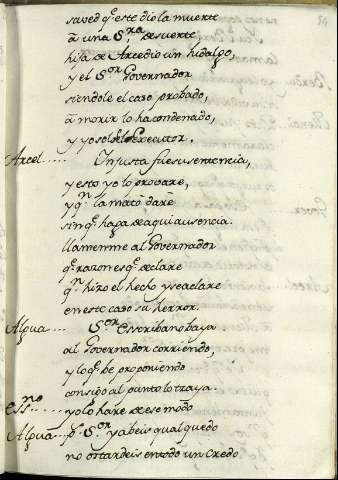 saved q̃ este dio la muerte
a una S.ra de suerte,
hija de Arcedio un hidalgo,
y el S.or Governador
siendole el caso probado,
a morir lo ha condenado,
y yo sol del Executor.
Arcel..... Injusta fue su sentencia,
y esto yo lo provare,
y q.n la mató daré
sin q̃ haga de aqui ausencia.
llamenme al Governador
q̃ razon es q̃ declare
q.n hizo el hecho y se aclare
en este caso su herror.
Algua.... S.or Escribano vaya
al Governador corriendo,
y lo q̃ he proponiendo
consigo al punto lo traya.
Ess.no...... yo lo hare de ese modo
Algua.... S.or ya beis qual quedo
no os tardeis en todo un credo